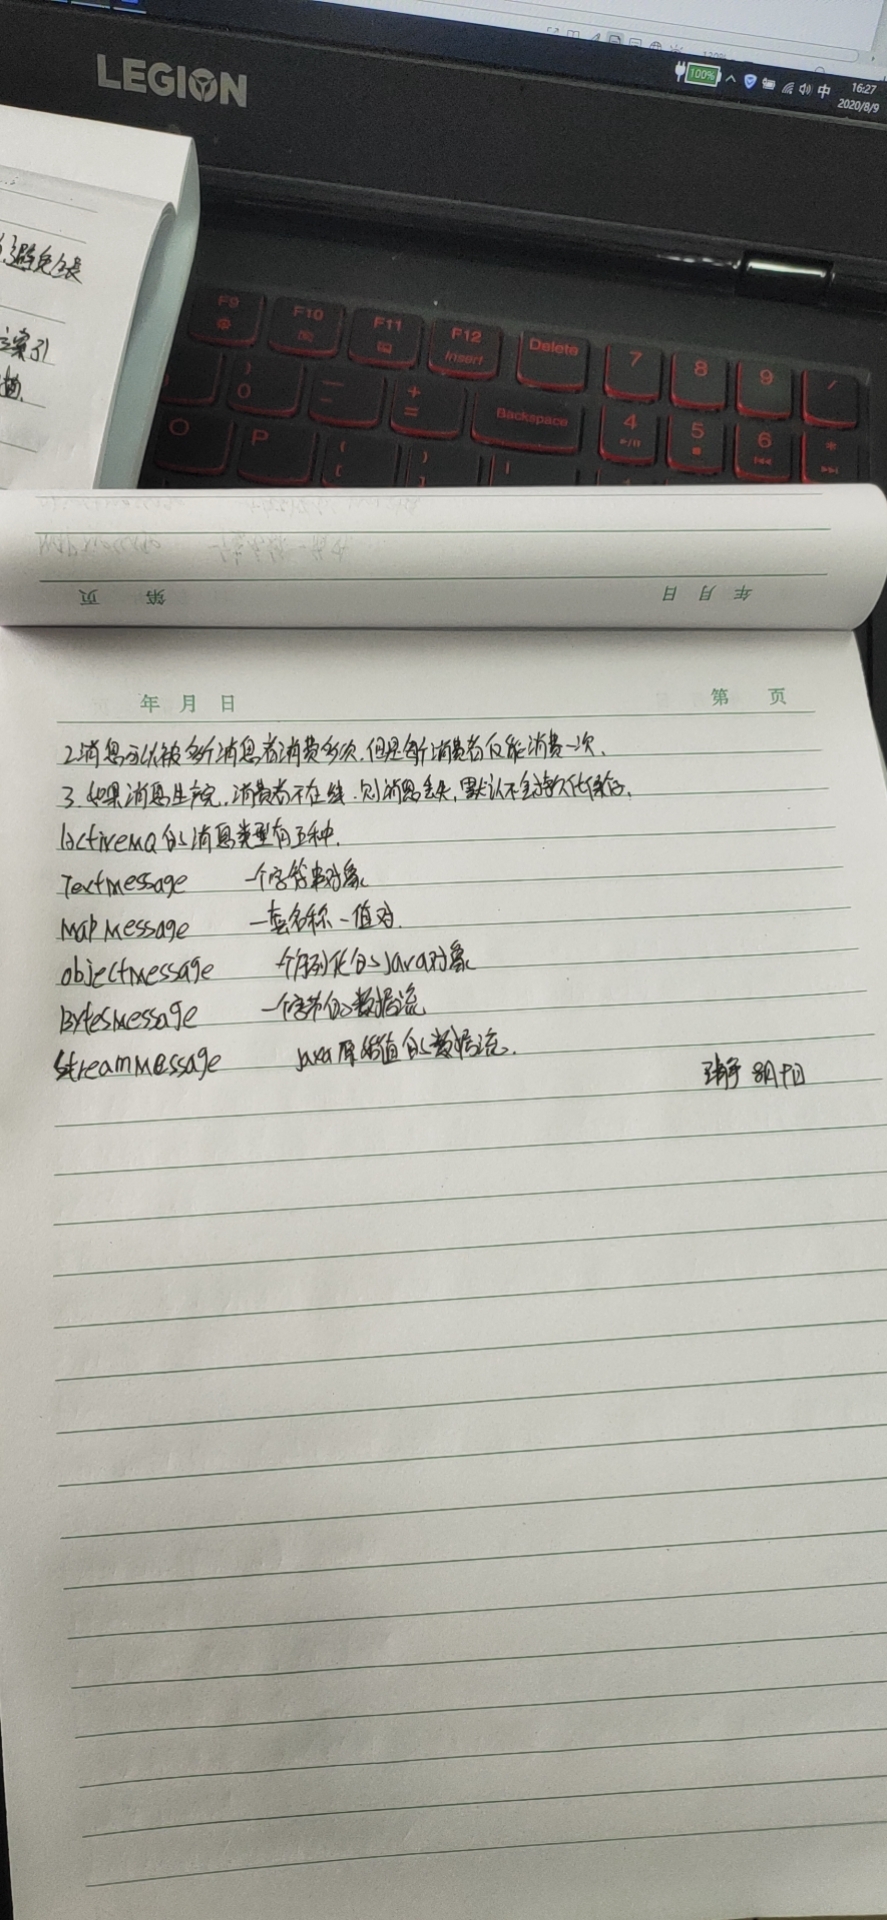 LEGION
100%
中
16:27
2020/8/9
避免全表
索引
F9
F10
F11
F12
Insert
Delete
7
8
9
/
)
0
—
-
+
=
Backspace
4
5
6
*
O
P
第 页
年 月 日
年 月 日
第 页
2.消息可以被多个消费者消费多次.但是每个消费者仅能消费一次.
3.如果消息生产完.消费者不在线.则消息丢失,默认不会持久化保存.
activeMQ的消息类型有五种.
TextMessage 一个字符串对象
MapMessage 一套名称-值对.
objectMessage 一个序列化的Java对象
BytesMessage 一个字节的数据流
StreamMessage Java原始值的数据流.
8月9日